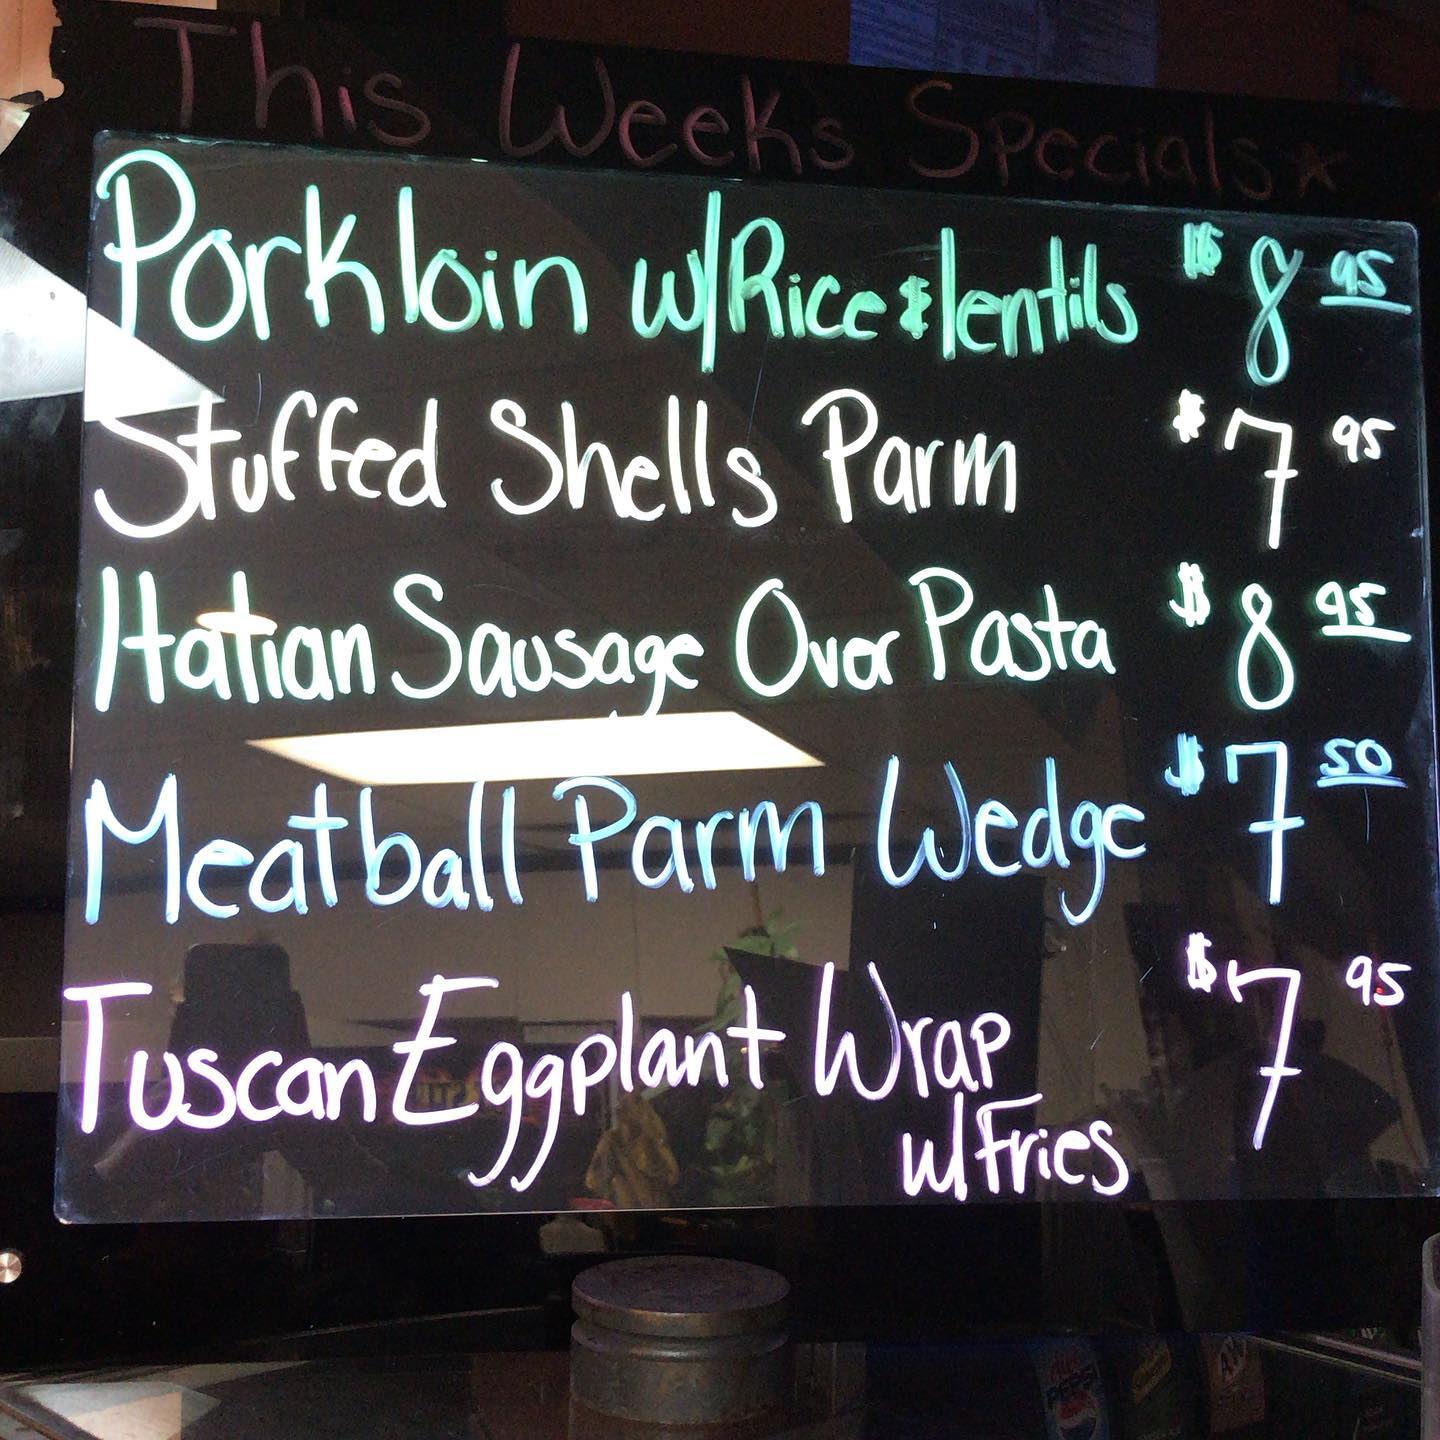 This Weeks Specials
Porkloin w/Rice & lentils $8 95
Stuffed Shells Parm $7 95
Italian Sausage Over Pasta $8 95
Meatball Parm Wedge $7 50
Tuscan Eggplant Wrap $7 95
w/Fries
PEPSI